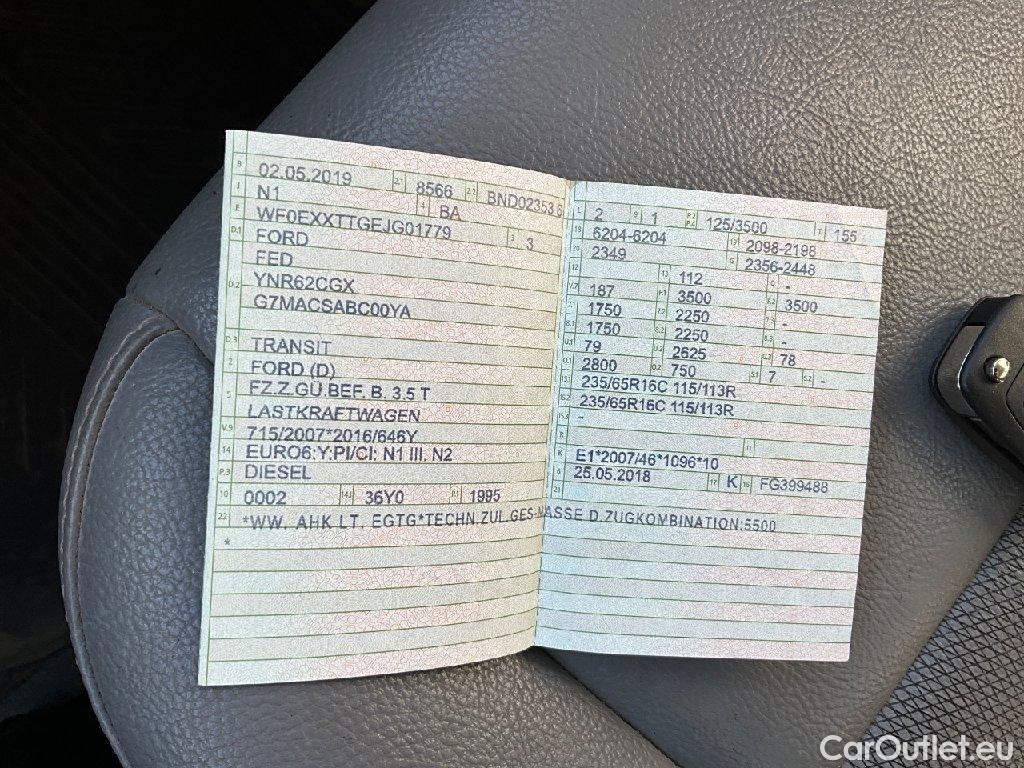 B 02.05.2019 2.1 8566 2.2 BND02353 6
J N1 4 BA
E WF0EXXTTGEJG01779 3 3
D.1 FORD
FED
D.2 YNR62CGX
G7MACSABC00YA
D.3 TRANSIT
2 FORD (D)
5 FZ.Z.GÜ.BEF. B. 3.5 T
LASTKRAFTWAGEN
V.9 715/2007*2016/646Y
14 EURO6;Y;PI/CI; N1 III, N2
P.3 DIESEL
10 0002 14.1 36Y0 P.1 1995
22 *WW. AHK LT. EGTG*TECHN.ZUL.GES-MASSE D.ZUGKOMBINATION:5500
*
L 2 9 1 P.2 P.4 125/3500 T 155
18 6204-6204 19 2098-2198
20 2349 G 2356-2448
12 13 112 Q -
V.7 187 F.1 3500 F.2 3500
1750 2250 -
8.1 1750 8.2 2250 8.3 -
U.1 79 U.2 2625 U.3 78
O.1 2800 O.2 750 S.1 7 S.2 -
15.1 235/65R16C 115/113R
15.2 235/65R16C 115/113R
15.3 -
R 11
K E1*2007/46*1096*10
6 25.05.2018 17 K 16 FG399488
21
CarOutlet.eu